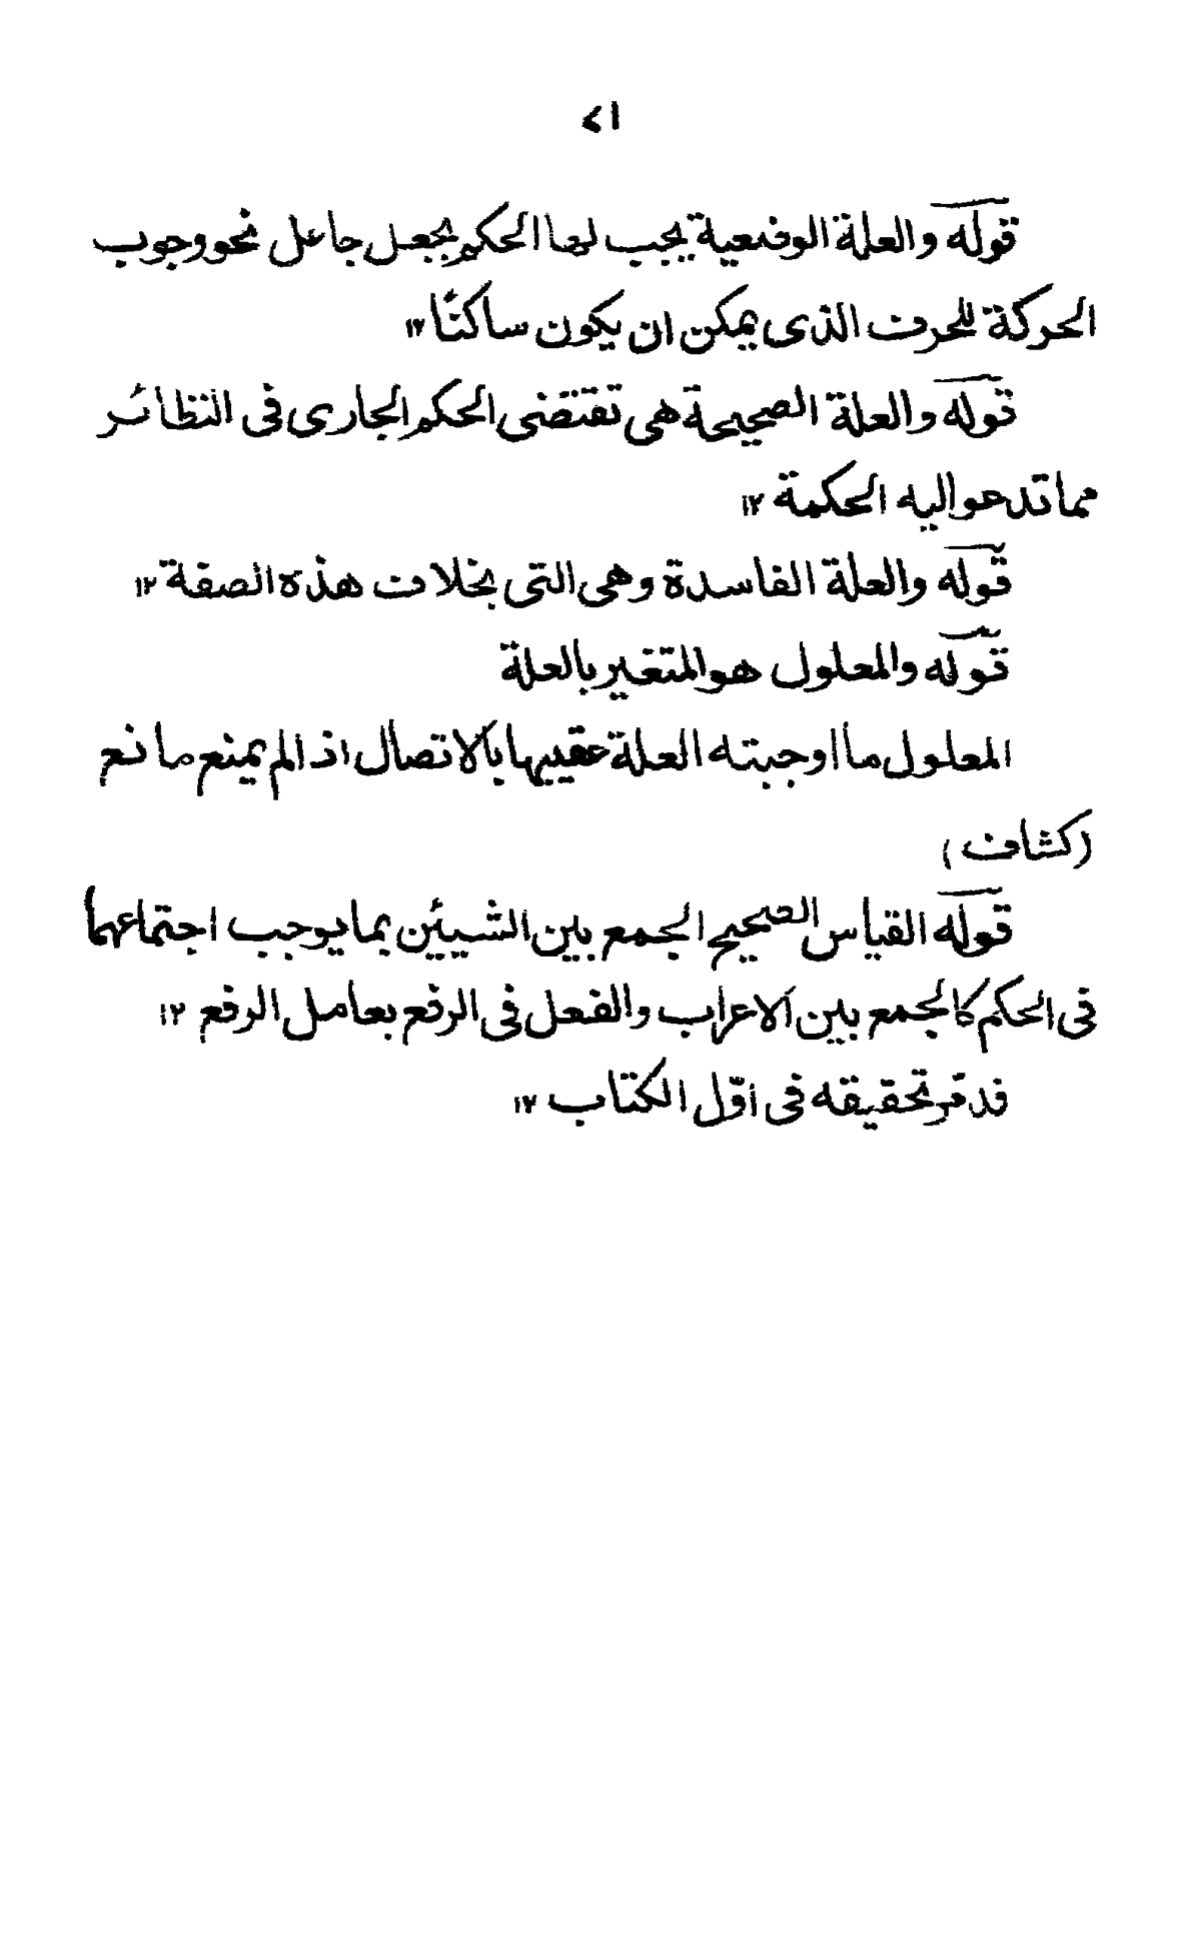 ۷۱
قوله والعلة الوضعية يجب لها الحكم بجعل جاعل نحو وجوب
الحركة للحرف الذى يمكن ان يكون ساكنًا ۱۲
قوله والعلة الصحيحة هى تقتضى الحكم الجارى فى النظائر
مما تدعو اليه الحكمة ۱۲
قوله والعلة الفاسدة وهى التى بخلاف هذه الصفة ۱۲
قوله والمعلول هو المتغير بالعلة
المعلول ما اوجبته العلة عقيبها بالاتصال اذ الم يمنع مانع
(كشاف)
قوله القياس الصحيح الجمع بين الشيئين بما يوجب اجتماعهما
فى الحكم كالجمع بين الاعراب والفعل فى الرفع بعامل الرفع ۱۲
قد مر تحقيقه فى اوّل الكتاب ۱۲